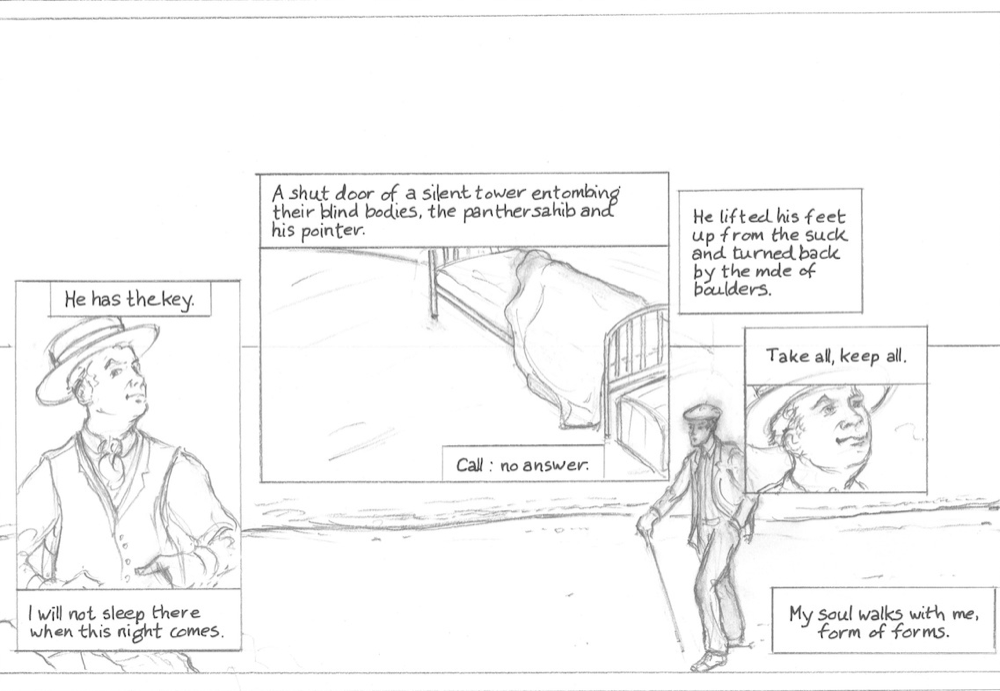 He has the key.
I will not sleep there
when this night comes.
A shut door of a silent tower entombing
their blind bodies, the panthersahib and
his pointer.
Call : no answer.
He lifted his feet
up from the suck
and turned back
by the mole of
boulders.
Take all, keep all.
My soul walks with me,
form of forms.